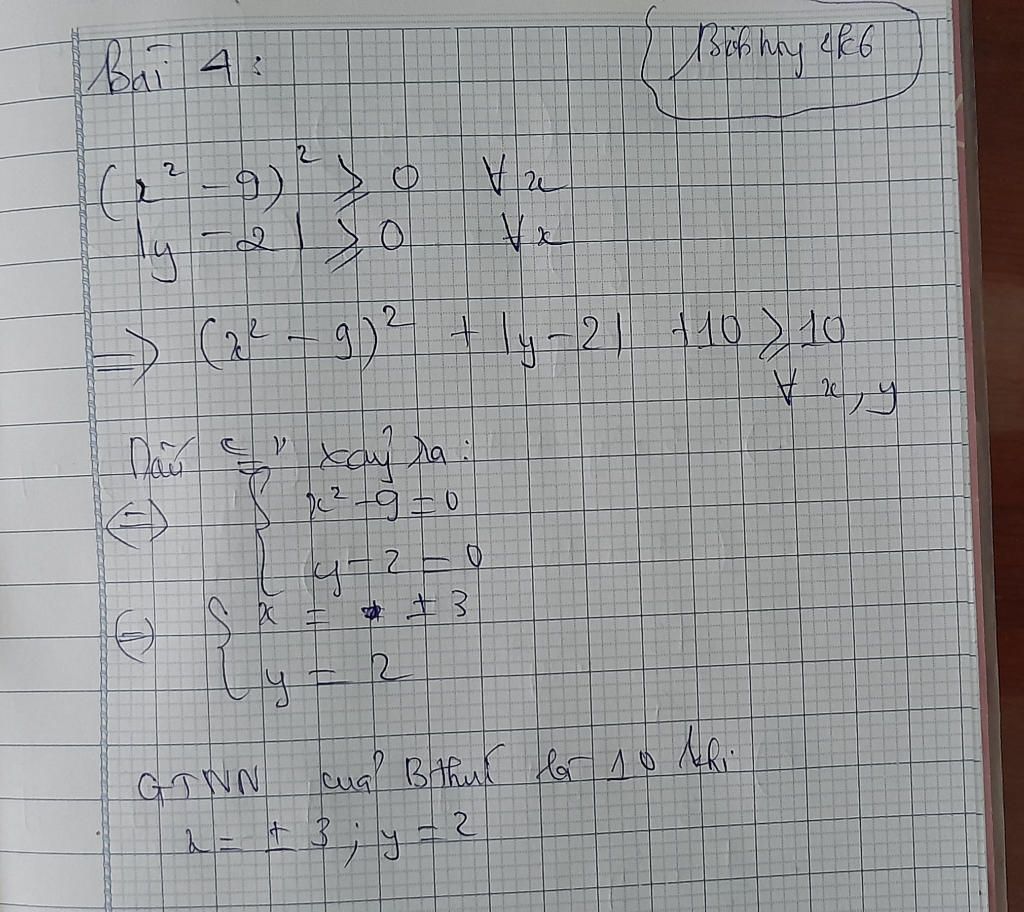 Bài 4:
(x² - 9)² ⩾ 0 ∀x
|y - 2| ⩾ 0 ∀x
=> (x² - 9)² + |y - 2| + 10 ⩾ 10
∀ x, y
Dấu "=" xảy ra:
<=> { x² - 9 = 0
y - 2 = 0
<=> { x = ± 3
y = 2
GTNN của Bthức là 10 khi
x = ± 3; y = 2